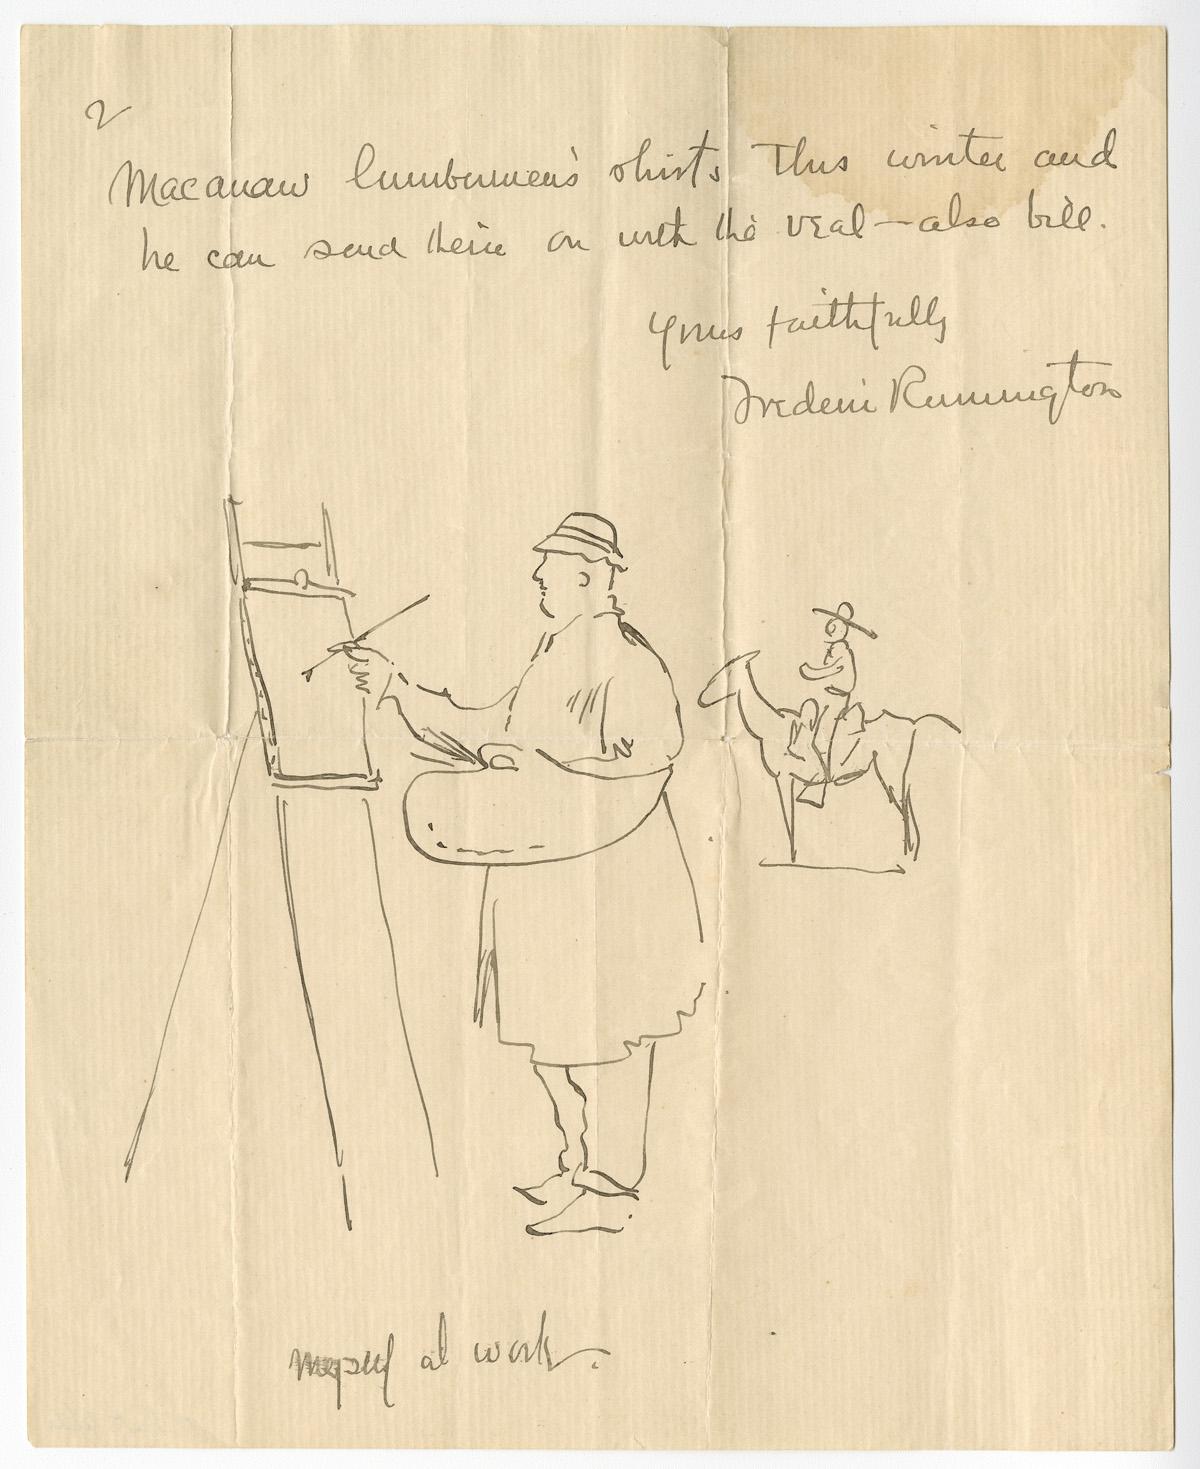 2
Macanaw lumbermen's shirts This winter and
he can send them on with the veal — also bill.
Yours faithfully
Frederic Remington
myself at work.